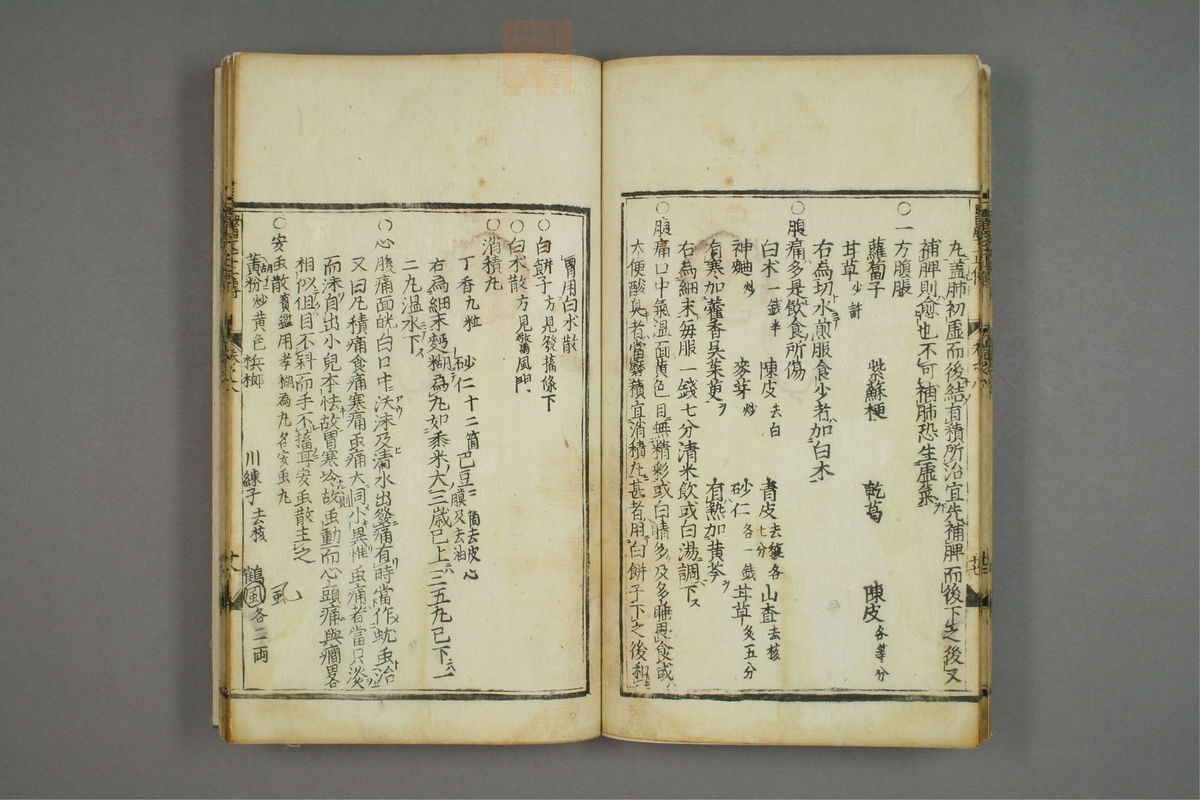 丸蓋肺初虚而後結有積所治宜先補脾而後下之後又
補脾則愈也不可補肺恐生虚氣
○一方腹脹
蘿蔔子 紫蘇梗 乾葛 陳皮各等分
甘草少許
右為切水煎服食少者加白木
○腹痛多是飲食所傷
白木一錢半 陳皮去白 青皮去穰各七分 山査去核
神麯炒 麥芽炒 砂仁各一錢 甘草炙五分
有寒加藿香吳茱萸 有熱加黄芩
右為細末每服一錢七分清米飲或白湯調下
○腹痛口中氣溫面黄色目無精彩或白睛多及多睡思食或
大便酸臭者當磨積宜消積丸甚者用白餅子下之後和
胃用白朮散
○白餅子方見發搐條下
○白朮散方見驚風門
○消積丸
丁香九粒 砂仁十二箇 巴豆二箇去皮心膜及去油
右為細末麪糊為丸如黍米大三歲已上三五丸已下
二丸温水下
○心腹痛面㿠白口中沃沫及清水出發痛有時當作蚘虫治
又曰凡積痛食痛寒痛虫痛大同小異惟虫痛者當只淡
而沫自出小兒本怯故胃寒冷故虫動而心頭痛與癇畧
相似但目不斜而手不搐耳安虫散主之
○安虫散寳鑑用孝糊為丸名安虫丸
黄粉炒黄色 梹榔 川練子去核 鶴虱各二両